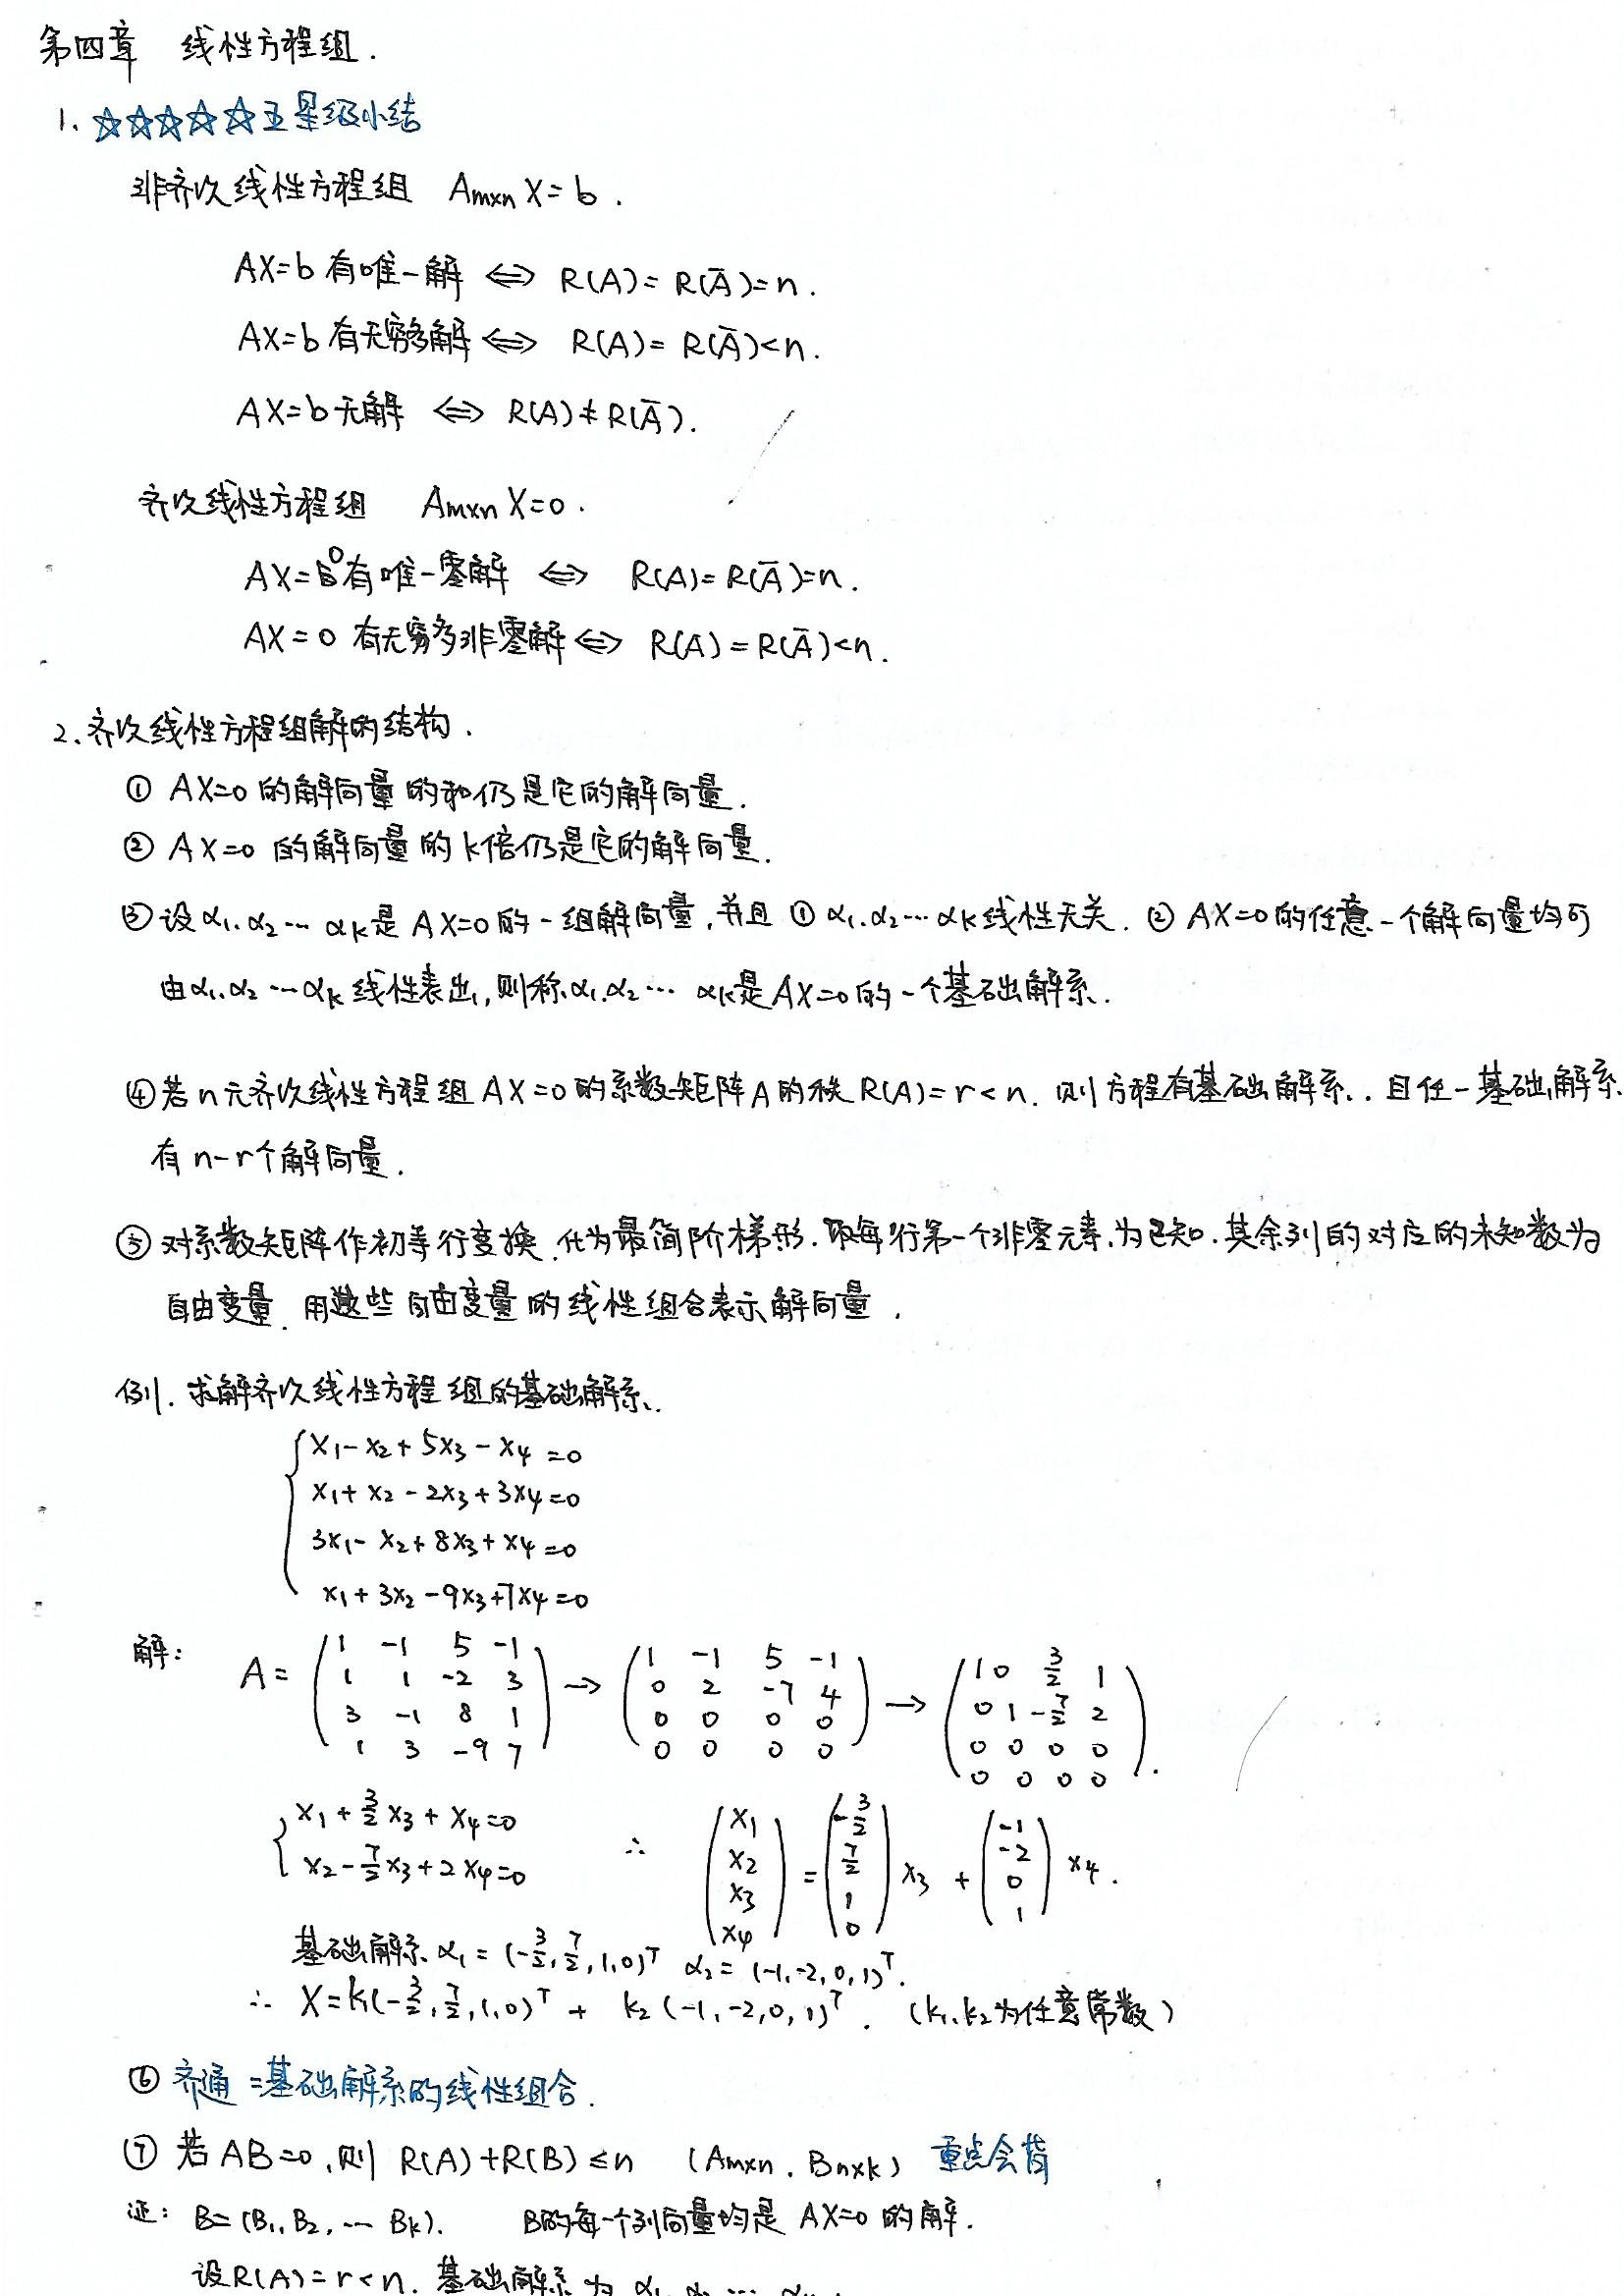 第四章 线性方程组.
1. ☆☆☆☆☆五星级小结
非齐次线性方程组 Am×n X=b.
AX=b 有唯一解 ⇔ R(A)=R(Ā)=n.
AX=b 有无穷多解 ⇔ R(A)=R(Ā)<n.
AX=b 无解 ⇔ R(A)≠R(Ā).
齐次线性方程组 Am×n X=0.
AX=0 有唯一零解 ⇔ R(A)=R(Ā)=n.
AX=0 有无穷多非零解 ⇔ R(A)=R(Ā)<n.
2、齐次线性方程组解的结构.
① AX=0 的解向量的和仍是它的解向量.
② AX=0 的解向量的k倍仍是它的解向量.
③ 设α₁.α₂…αk是AX=0的一组解向量,并且 ① α₁.α₂…αk线性无关. ② AX=0的任意一个解向量均可
由α₁.α₂…αk线性表出,则称α₁.α₂…αk是AX=0的一个基础解系.
④ 若n元齐次线性方程组AX=0的系数矩阵A的秩R(A)=r<n.则方程有基础解系.且任一基础解系
有n-r个解向量.
⑤ 对系数矩阵作初等行变换.化为最简阶梯形.取每行第一个非零元素为已知.其余列的对应的未知数为
自由变量.用这些自由变量的线性组合表示解向量.
例1.求解齐次线性方程组的基础解系.
{ x₁-x₂+5x₃-x₄=0
x₁+x₂-2x₃+3x₄=0
3x₁-x₂+8x₃+x₄=0
x₁+3x₂-9x₃+7x₄=0
解: A= (1 -1 5 -1; 1 1 -2 3; 3 -1 8 1; 1 3 -9 7) → (1 -1 5 -1; 0 2 -7 4; 0 0 0 0; 0 0 0 0) → (1 0 3/2 1; 0 1 -7/2 2; 0 0 0 0; 0 0 0 0).
{ x₁+3/2x₃+x₄=0
x₂-7/2x₃+2x₄=0
∴ (x₁ x₂ x₃ x₄) = (-3/2 7/2 1 0) x₃ + (-1 -2 0 1) x₄.
基础解系 α₁=(-3/2,7/2,1,0)ᵀ α₂=(-1,-2,0,1)ᵀ.
∴ X=k₁(-3/2,7/2,1,0)ᵀ + k₂(-1,-2,0,1)ᵀ. (k₁.k₂为任意常数)
⑥ 齐通=基础解系的线性组合.
⑦ 若AB=0,则 R(A)+R(B)≤n (Am×n. Bn×k) 重点会背
证: B=(B₁,B₂,…Bk). B的每一个列向量均是AX=0的解.
设R(A)=r<n.基础解系为